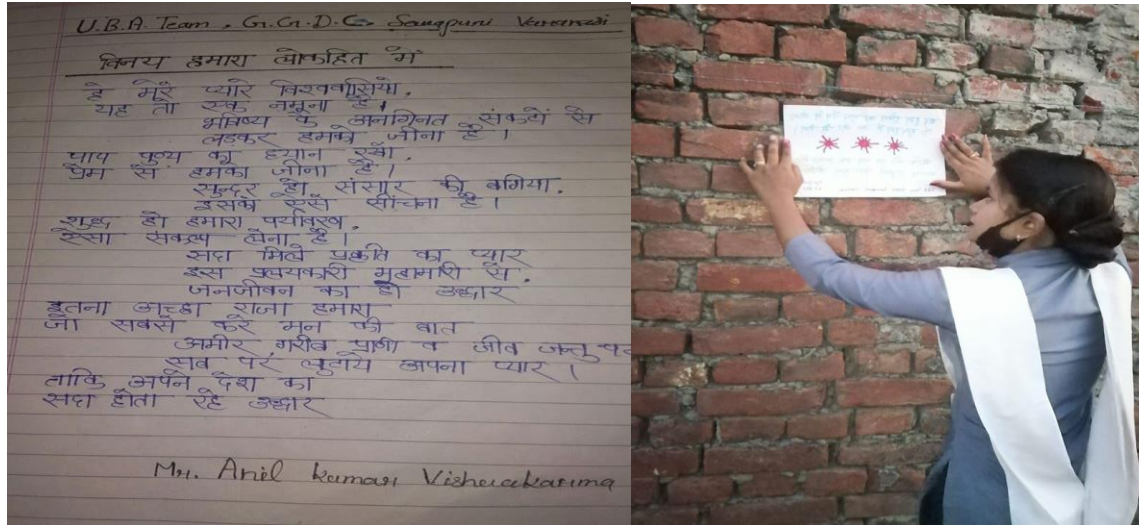 U.B.A. Team, G.G.D.C. Sevapuri Varanasi
विनय हमारा लोकहित में
हे मेरे प्यारे विश्ववासियो,
यह तो एक नमूना है।
भविष्य के अनगिनत संकटों से
लड़कर हमको जीना है।
पाप पुण्य का ध्यान रखो,
प्रेम से हमको जीना है।
सुन्दर हो संसार की बगिया,
इसको ऐसे सींचना है।
शुद्ध हो हमारा पर्यावरण,
ऐसा संकल्प लेना है।
सदा मिले प्रकृति का प्यार
इस प्रलयकारी महामारी से,
जनजीवन का हो उद्धार
इतना अच्छा राजा हमारा
जो सबसे करे मन की बात
अमीर गरीब प्राणी व जीव जन्तु पर
सब पर लुटाये अपना प्यार।
ताकि अपने देश का
सदा होता रहे उद्धार
Mr. Anil Kumar Vishwakarma